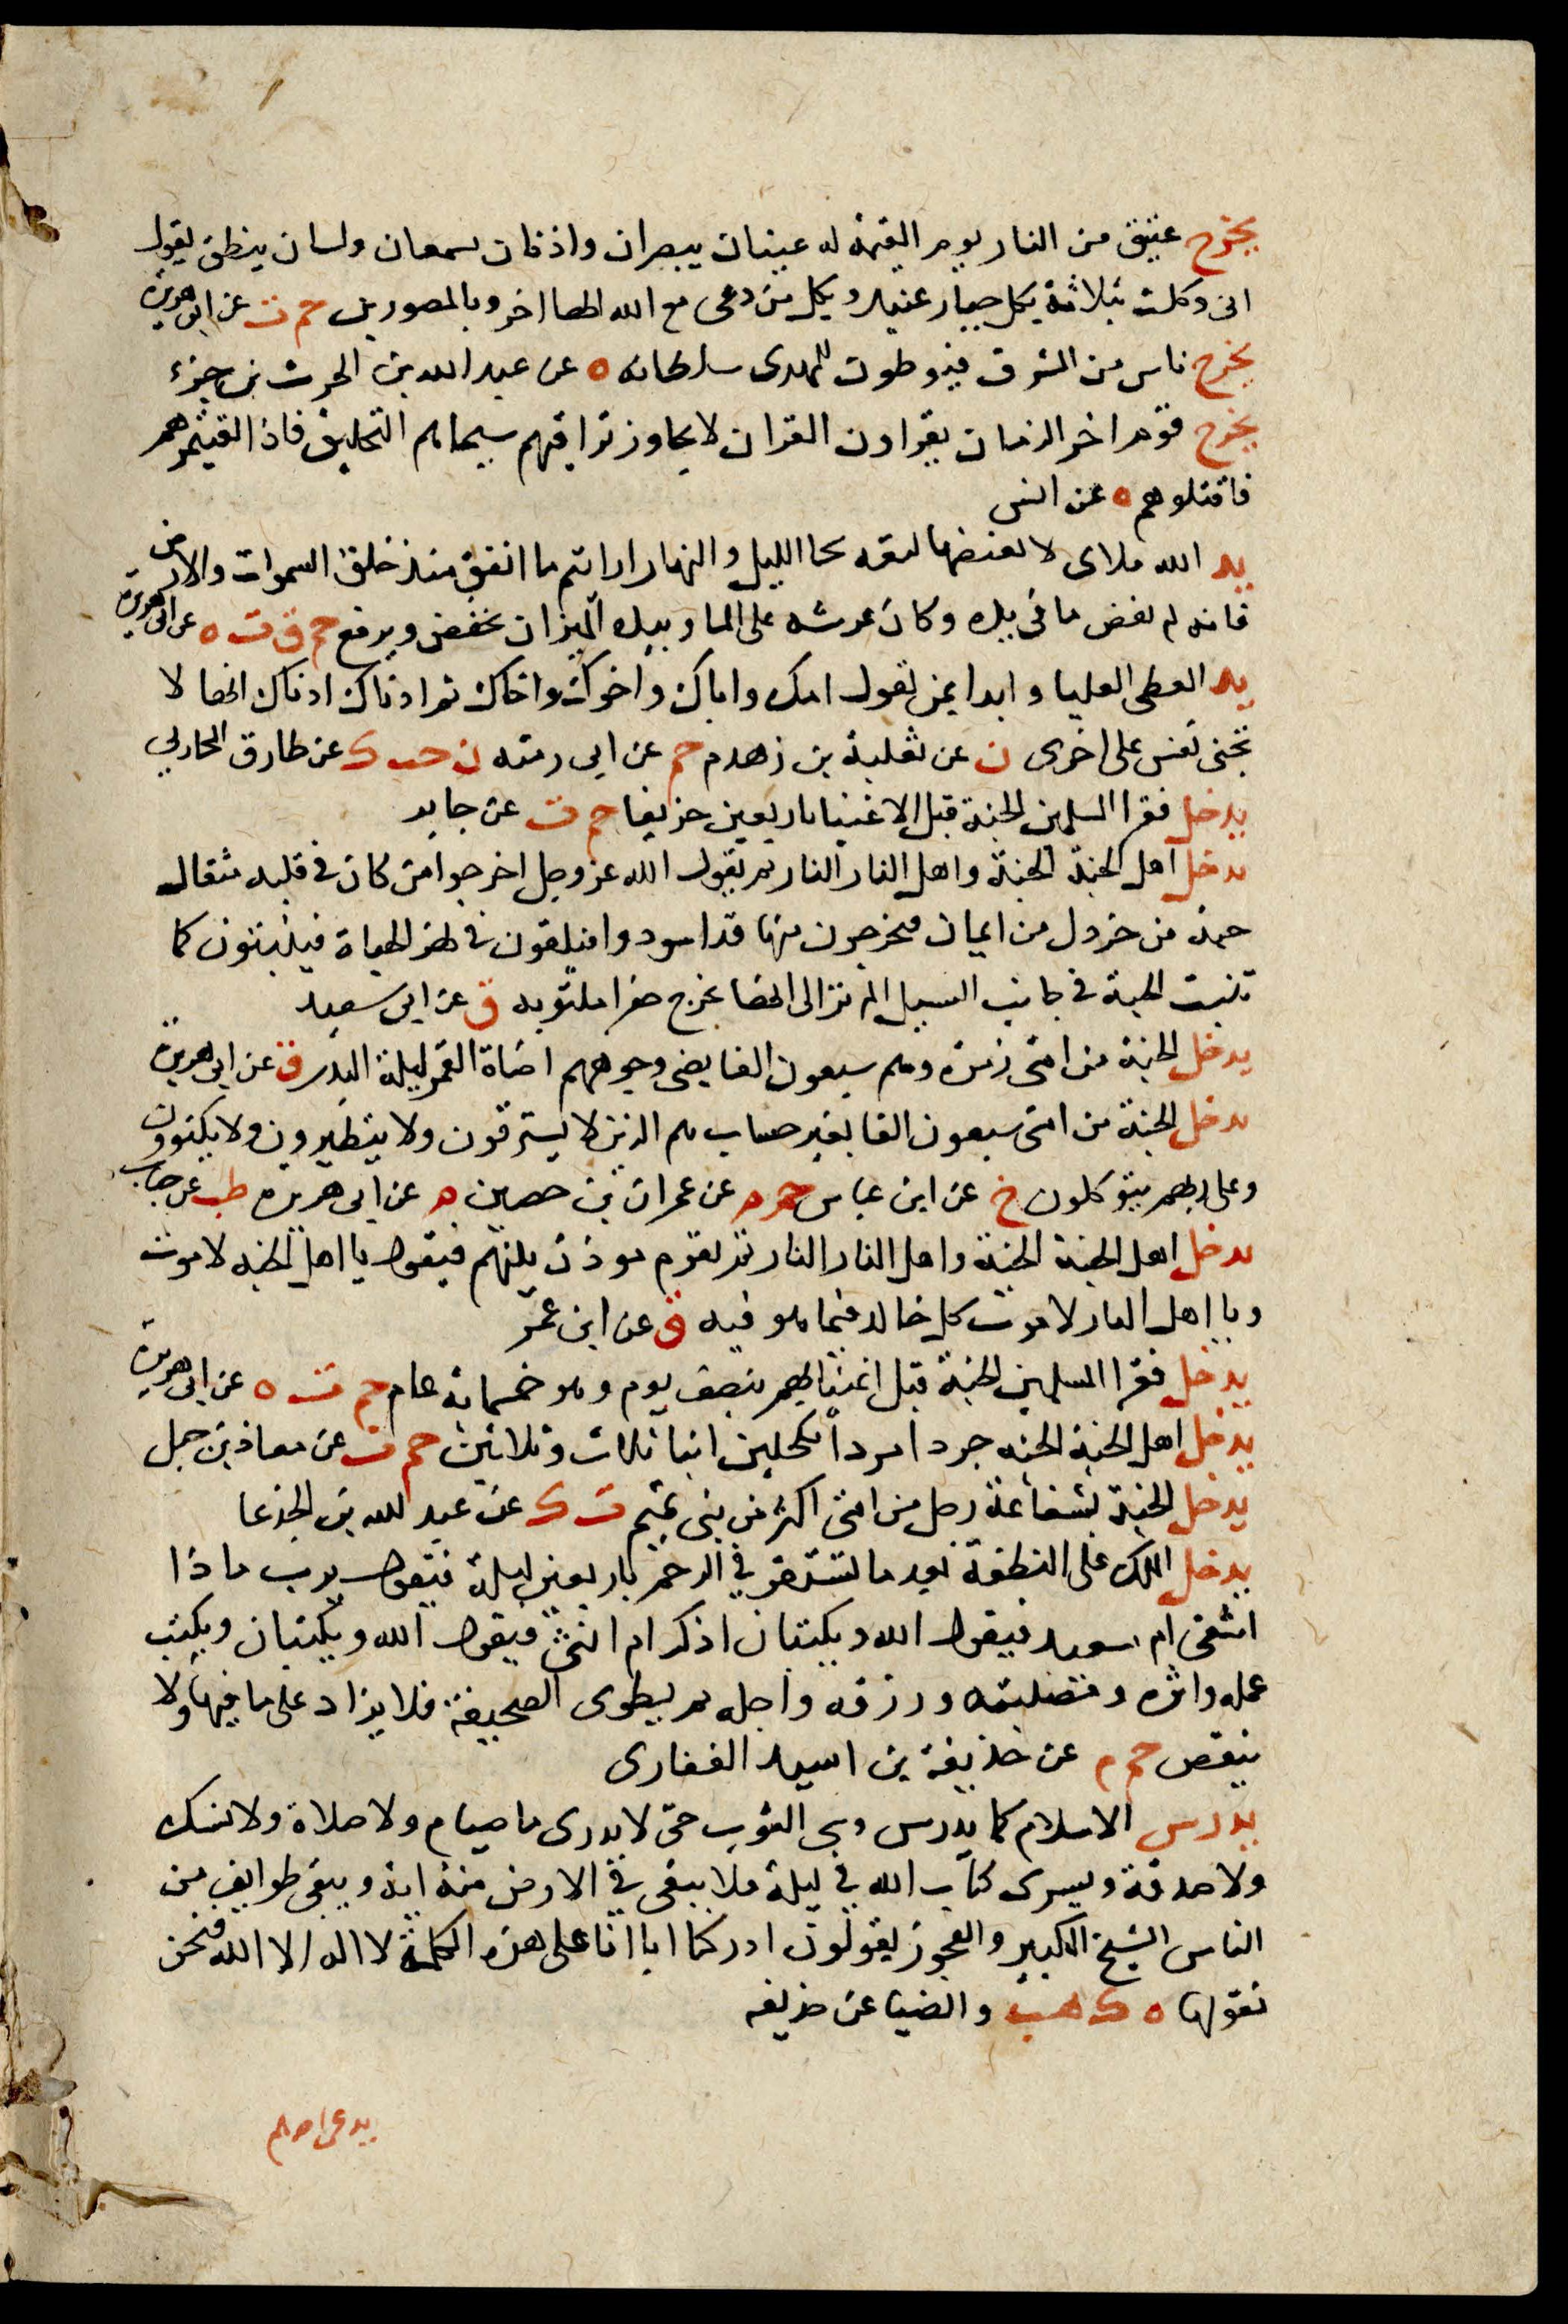 يخرج عنق من النار يوم القيمة له عينان يبصران واذنان يسمعان ولسان ينطق يقول
انى وكلت بثلاثة بكل جبار عنيد وبكل من دعى مع الله الها اخر وبالمصورين حم ت عن ابى هريرة
يخرج ناس من المشرق فيوطون للمهدى سلطانه ه عن عبد الله بن الحرث بن جزء
يخرج قوم اخر الزمان يقراون القران لا يجاوز تراقيهم سيماهم التحليق فاذا لقيتموهم
فاقتلوهم ه عن انس
يد الله ملاى لا يغيضها نفقه سحا الليل والنهار ارايتم ما انفق منذ خلق السموات والارض
فانه لم يغض ما فى يده وكان عرشه على الما وبيده الميزان يخفض ويرفع حم ق ت ه عن ابى هريرة
يد المعطى العليا وابدا بمن تعول امك واباك واختك واخاك ثم ادناك ادناك انها لا
تجنى نفس على اخرى ن عن ثعلبة بن زهدم حم عن ابى رمثه ن حب ك عن طارق المحاربي
يدخل فقرا المسلمين الجنة قبل الاغنيا باربعين خريفا حم ت عن جابر
يدخل اهل الجنة الجنة واهل النار النار ثم يقول الله عز وجل اخرجوا من كان فى قلبه مثقال
حبة من خردل من ايمان فيخرجون منها قد اسودوا فيلقون فى نهر الحياة فينبتون كما
تنبت الحبة فى جانب السيل الم تر الى انها تخرج صفرا ملتويه ق عن ابى سعيد
يدخل الجنة من امتى زمرة وهم سبعون الفا يضى وجوههم اضاة القمر ليلة البدر ق عن ابى هريرة
يدخل الجنة من امتى سبعون الفا بغير حساب هم الذين لا يسترقون ولا يتطيرون ولا يكتوون
وعلى ربهم يتوكلون خ عن ابن عباس حم م عن عمران بن حصين م عن ابى هريره طب عن خباب
يدخل اهل الجنة الجنة واهل النار النار ثم يقوم موذن بينهم فيقول يا اهل الجنه لا موت
ويا اهل النار لا موت كل خالد فيما هو فيه ق عن ابن عمر
يدخل فقرا المسلمين الجنة قبل اغنيايهم بنصف يوم وهو خمسماية عام حم ت ه عن ابى هريرة
يدخل اهل الجنة الجنه جردا مردا مكحلين ابنا ثلاث وثلاثين حم ت عن معاذ بن جبل
يدخل الجنة بشفاعة رجل من امتى اكثر من بنى تميم ت ك عن عبد الله بن الجدعا
يدخل الملك على النطفة بعد ما تستقر فى الرحم باربعين ليلة فيقول يرب ماذا
اشقى ام سعيد فيقول الله ويكتبان اذكر ام انثى فيقول الله ويكتبان ويكتب
عمله واثره ومصيبته ورزقه واجله ثم يطوى الصحيفة فلا يزاد على ما فيها ولا
ينقص حم م عن حذيفة بن اسيد الغفارى
يدرس الاسلام كما يدرس وشى الثوب حتى لا يدرى ما صيام ولا صلاة ولا نسك
ولا صدقة ويسرى كتاب الله فى ليلة فلا يبقى فى الارض منه اية ويبقى طوايف من
الناس الشيخ الكبير والعجوز يقولون ادركنا ابااناعلى هذه الكلمة لا اله الا الله فنحن
نقولها ه ك هب والضيا عن حذيفه
يدعى احدهم